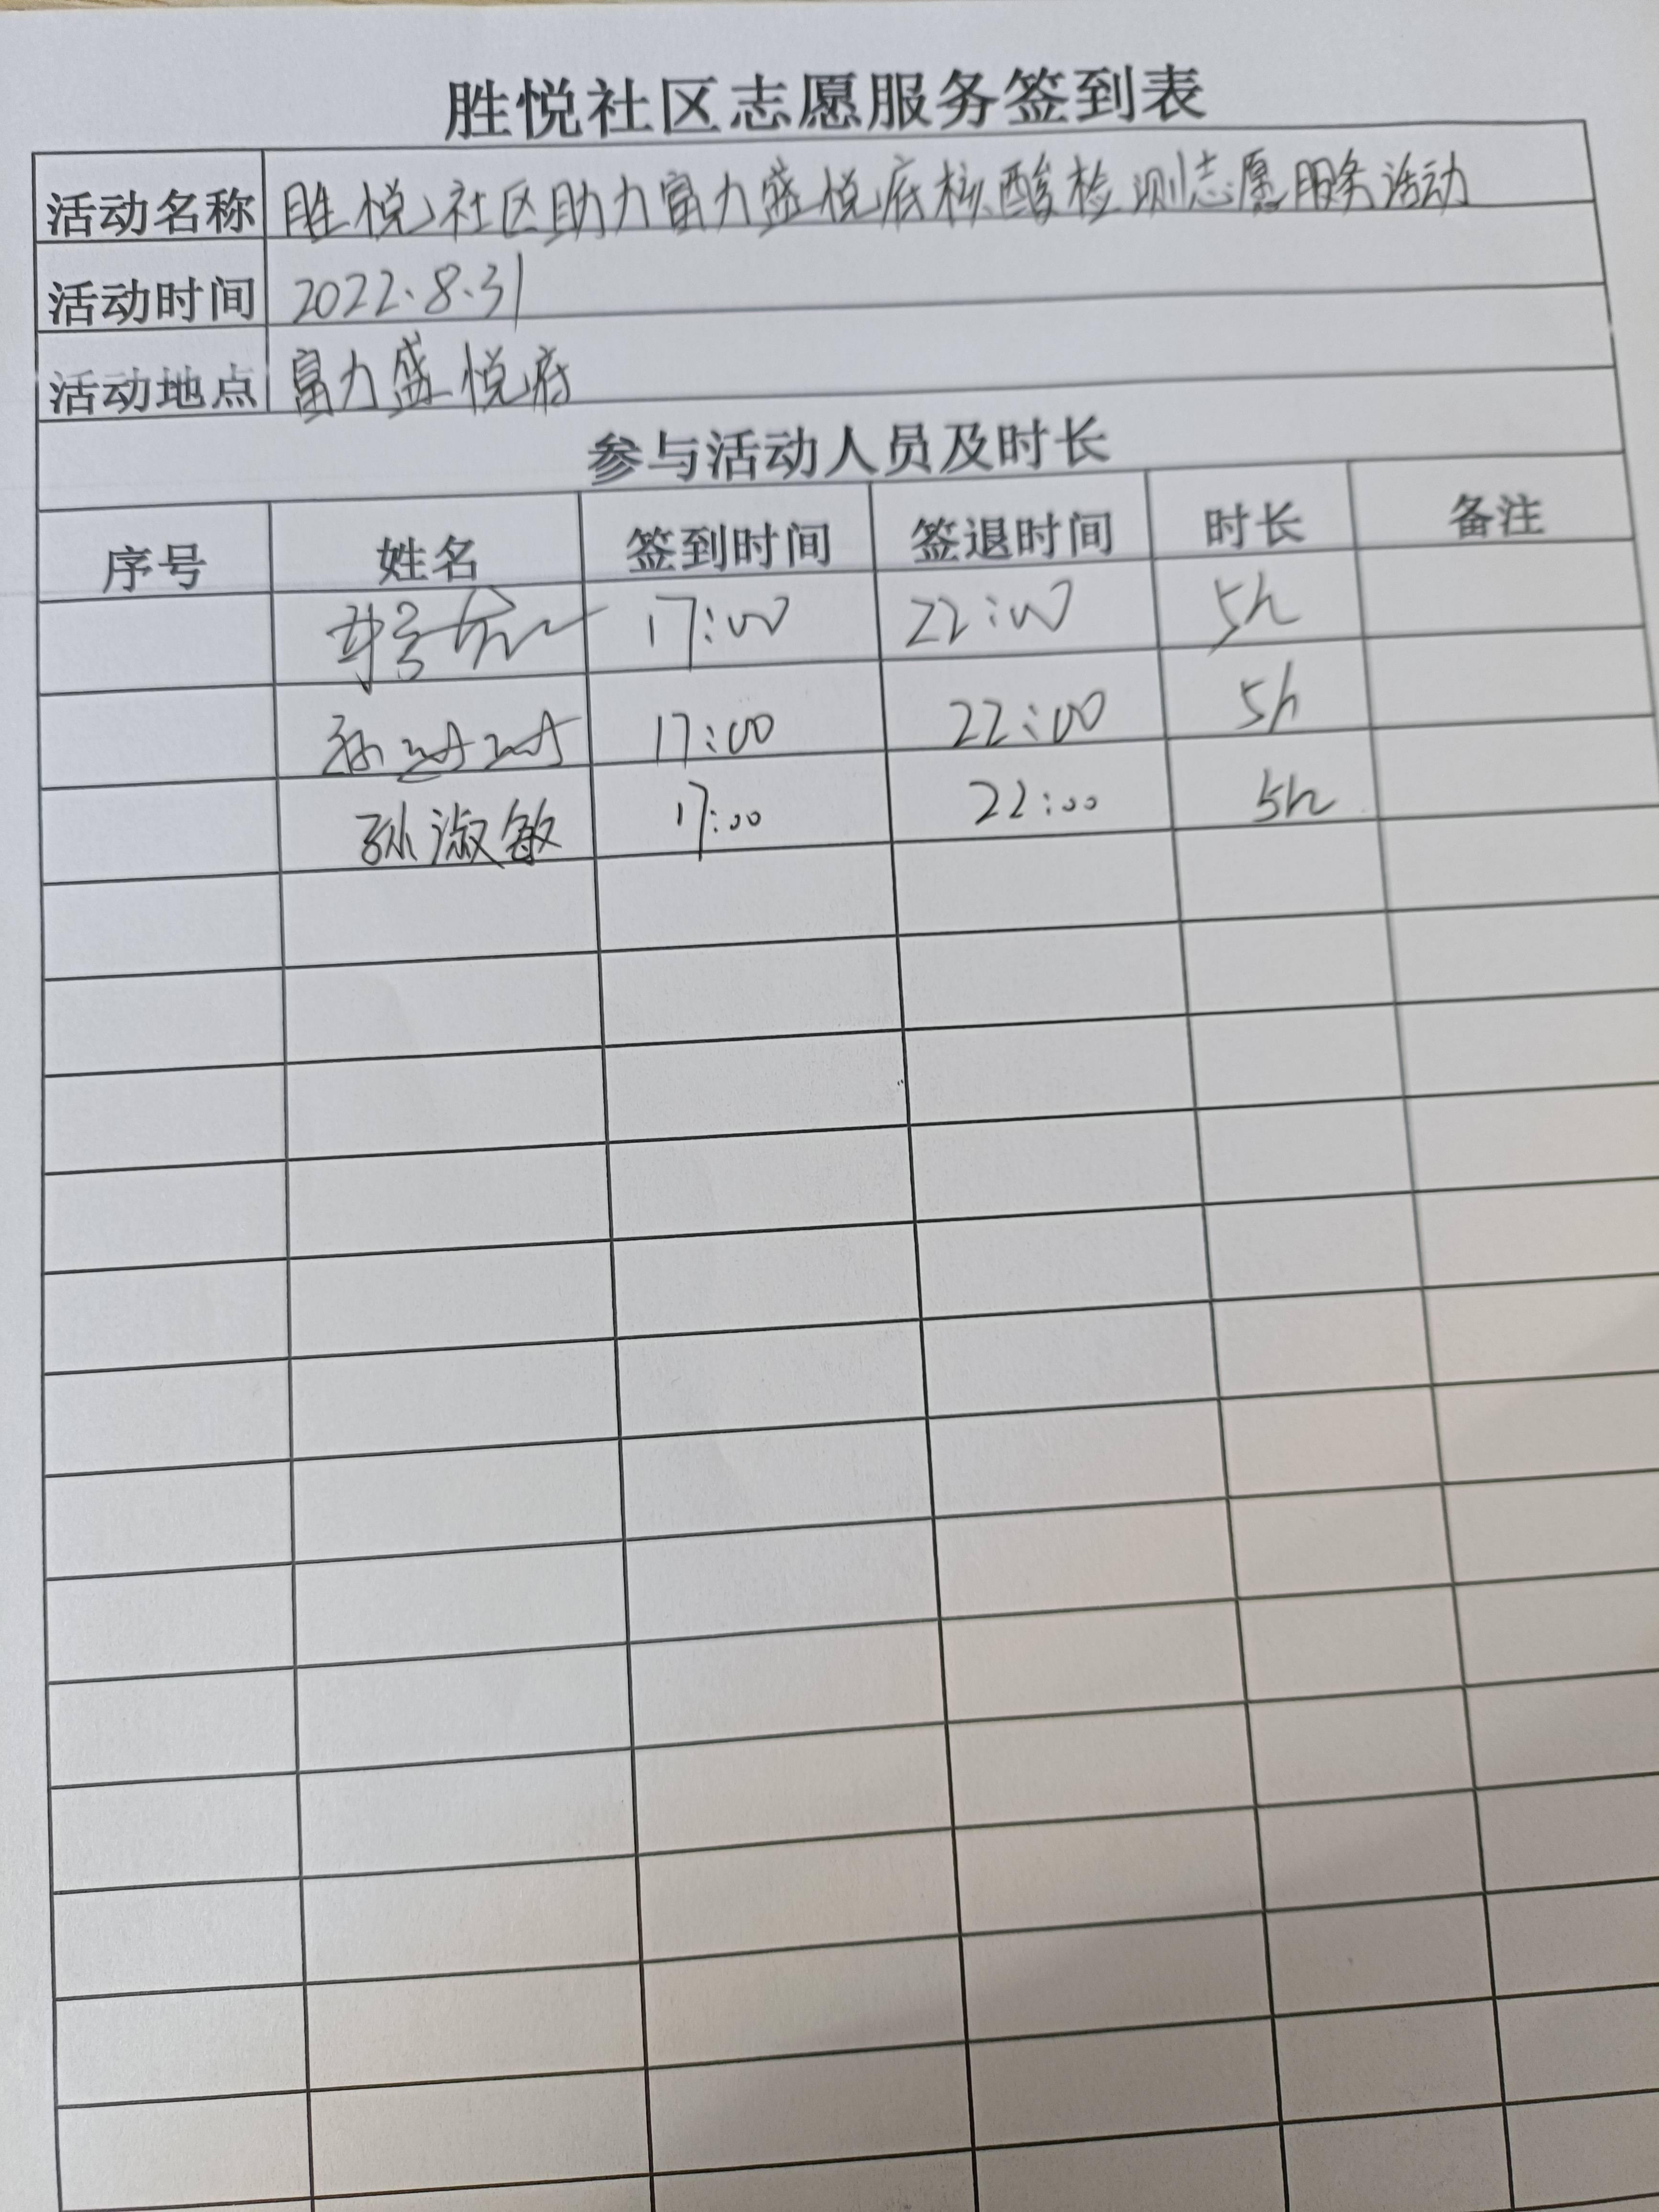 胜悦社区志愿服务签到表
活动名称 胜悦社区助力富力盛悦府核酸检测志愿服务活动
活动时间 2022.8.31
活动地点 富力盛悦府
参与活动人员及时长
序号 姓名 签到时间 签退时间 时长 备注
17:00 22:00 5h
孙 17:00 22:00 5h
孙淑敏 17:00 22:00 5h